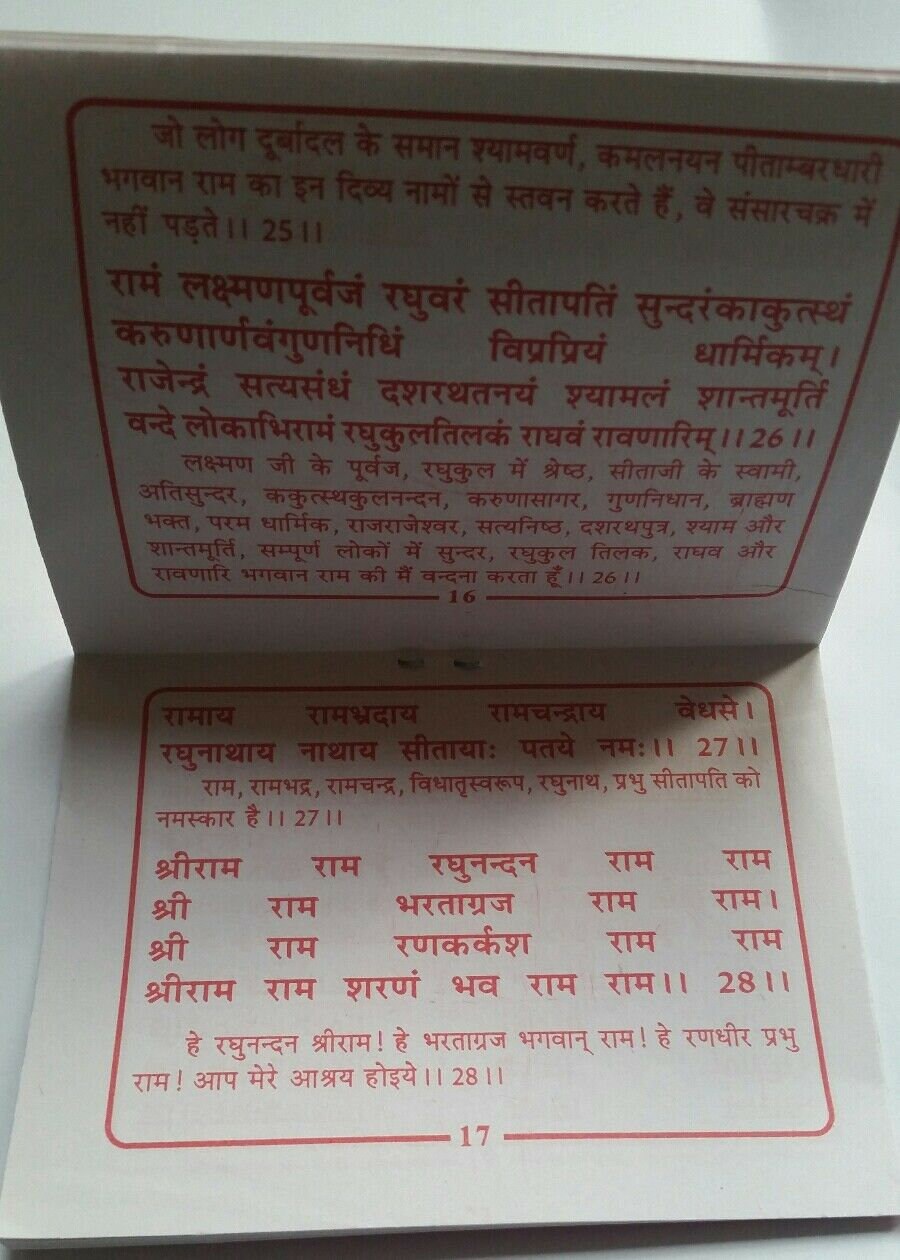 जो लोग दूर्बादल के समान श्यामवर्ण, कमलनयन पीताम्बरधारी
भगवान राम का इन दिव्य नामों से स्तवन करते हैं, वे संसारचक्र में
नहीं पड़ते।। 25।।
रामं लक्ष्मणपूर्वजं रघुवरं सीतापतिं सुन्दरंकाकुत्स्थं
करुणार्णवंगुणनिधिं विप्रप्रियं धार्मिकम्।
राजेन्द्रं सत्यसंधं दशरथतनयं श्यामलं शान्तमूर्ति
वन्दे लोकाभिरामं रघुकुलतिलकं राघवं रावणारिम्।।26।।
लक्ष्मण जी के पूर्वज, रघुकुल में श्रेष्ठ, सीताजी के स्वामी,
अतिसुन्दर, ककुत्स्थकुलनन्दन, करुणासागर, गुणनिधान, ब्राह्मण
भक्त, परम धार्मिक, राजराजेश्वर, सत्यनिष्ठ, दशरथपुत्र, श्याम और
शान्तमूर्ति, सम्पूर्ण लोकों में सुन्दर, रघुकुल तिलक, राघव और
रावणारि भगवान राम की मैं वन्दना करता हूँ।। 26।।
16
रामाय रामभ्रदाय रामचन्द्राय वेधसे।
रघुनाथाय नाथाय सीतायाः पतये नमः।। 27।।
राम, रामभद्र, रामचन्द्र, विधातृस्वरूप, रघुनाथ, प्रभु सीतापति को
नमस्कार है।। 27।।
श्रीराम राम रघुनन्दन राम राम
श्री राम भरताग्रज राम राम।
श्री राम रणकर्कश राम राम
श्रीराम राम शरणं भव राम राम।। 28।।
हे रघुनन्दन श्रीराम! हे भरताग्रज भगवान् राम! हे रणधीर प्रभु
राम! आप मेरे आश्रय होइये।। 28।।
17